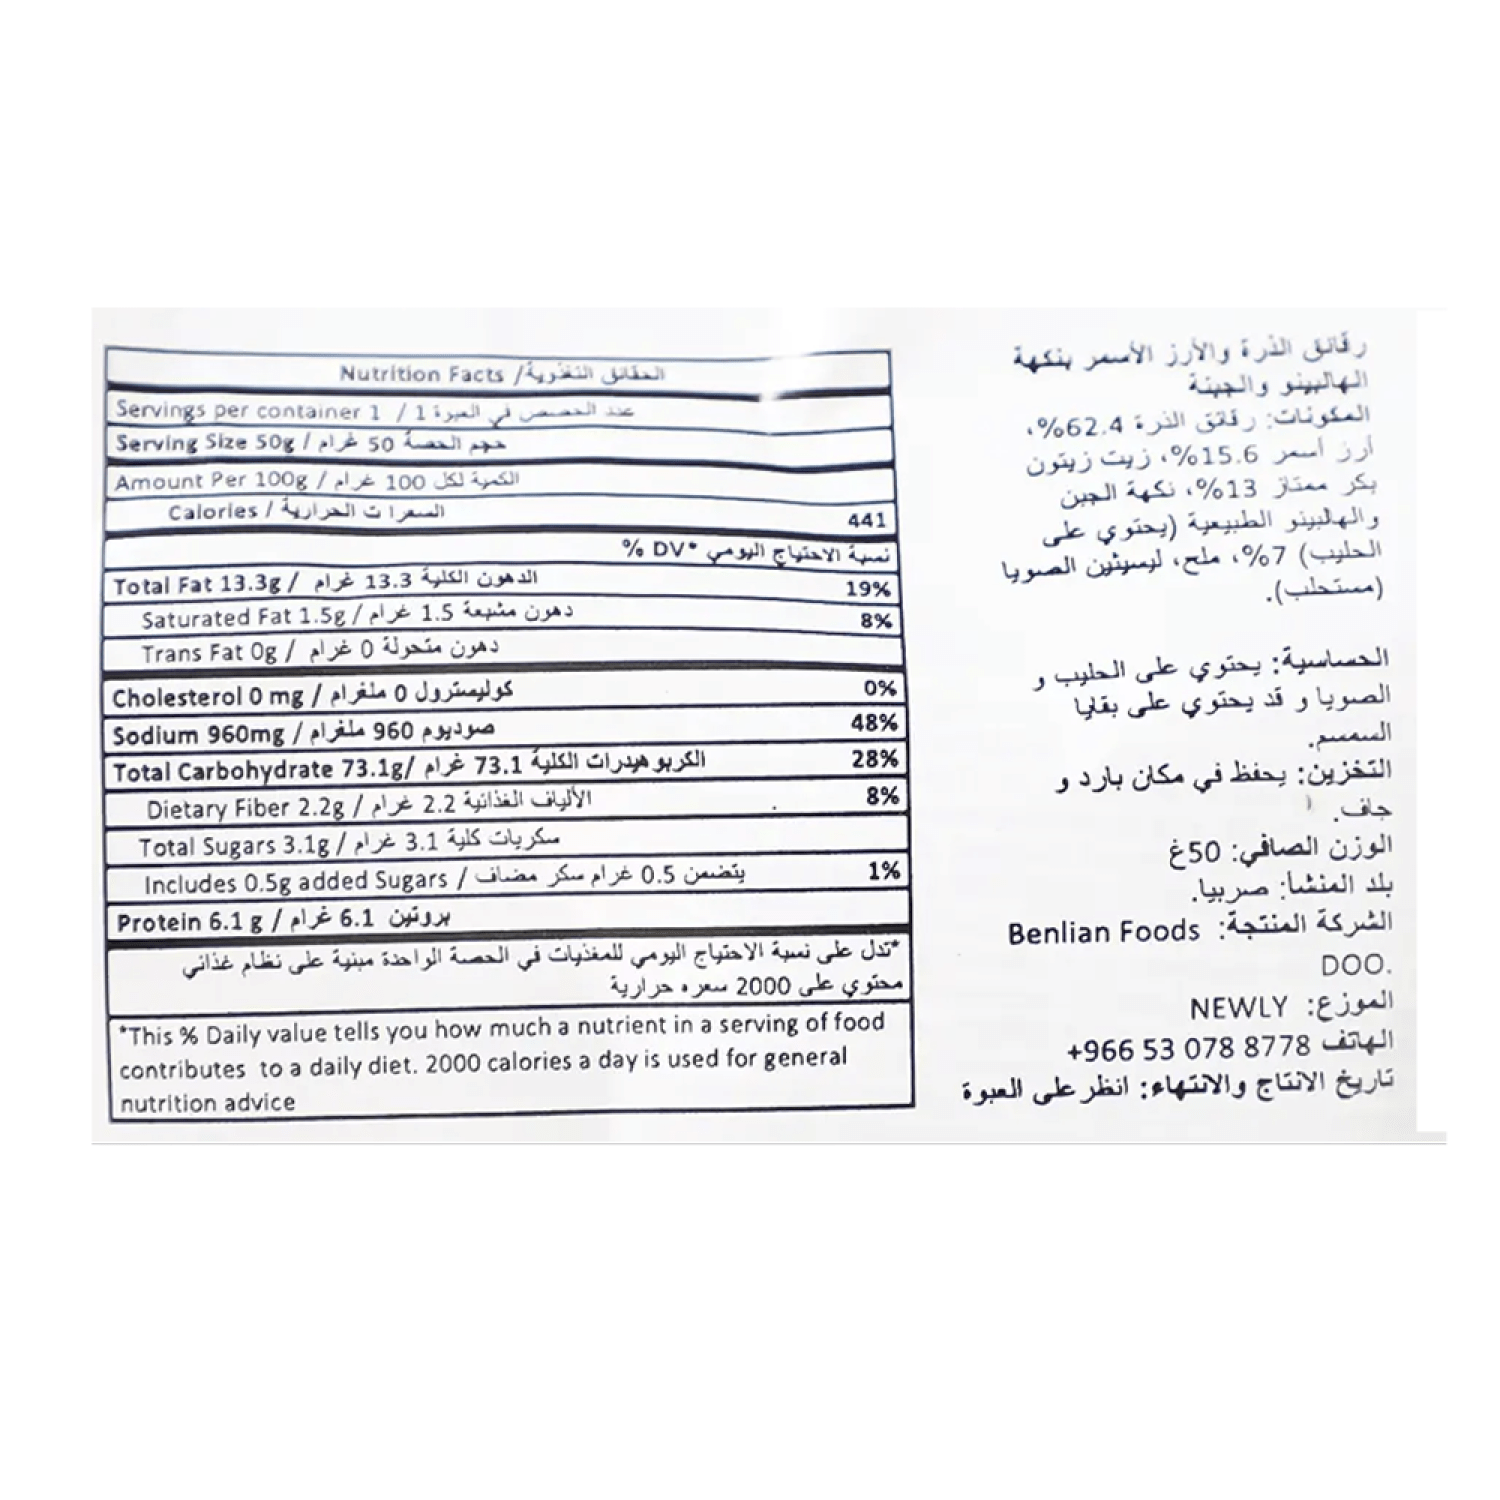 Nutrition Facts /الحقائق التغذوية
Servings per container 1 / 1 عدد الحصص في العبوة
Serving Size 50g / حجم الحصة 50 غرام
Amount Per 100g / الكمية لكل 100 غرام
Calories / السعرات الحرارية
441
% DV* نسبة الاحتياج اليومي
Total Fat 13.3g / الدهون الكلية 13.3 غرام 19%
Saturated Fat 1.5g / دهون مشبعة 1.5 غرام 8%
Trans Fat 0g / دهون متحولة 0 غرام
Cholesterol 0 mg / كوليسترول 0 ملغرام 0%
Sodium 960mg / صوديوم 960 ملغرام 48%
Total Carbohydrate 73.1g/ الكربوهيدرات الكلية 73.1 غرام 28%
Dietary Fiber 2.2g / الألياف الغذائية 2.2 غرام 8%
Total Sugars 3.1g / سكريات كلية 3.1 غرام
Includes 0.5g added Sugars / يتضمن 0.5 غرام سكر مضاف 1%
Protein 6.1 g / بروتين 6.1 غرام
*تدل على نسبة الاحتياج اليومي للمغذيات في الحصة الواحدة مبنية على نظام غذائي
محتوي على 2000 سعره حرارية
*This % Daily value tells you how much a nutrient in a serving of food
contributes to a daily diet. 2000 calories a day is used for general
nutrition advice
رقائق الذرة والأرز الأسمر بنكهة
الهالبينو والجبنة
المكونات: رقائق الذرة 62.4%،
أرز أسمر 15.6%، زيت زيتون
بكر ممتاز 13%، نكهة الجبن
والهالبينو الطبيعية (يحتوي على
الحليب) 7%، ملح، ليسيثين الصويا
(مستحلب).
الحساسية: يحتوي على الحليب و
الصويا و قد يحتوي على بقايا
السمسم.
التخزين: يحفظ في مكان بارد و
جاف.
الوزن الصافي: 50غ
بلد المنشأ: صربيا.
الشركة المنتجة: Benlian Foods
DOO.
الموزع: NEWLY
الهاتف +966 53 078 8778
تاريخ الانتاج والانتهاء: انظر على العبوة